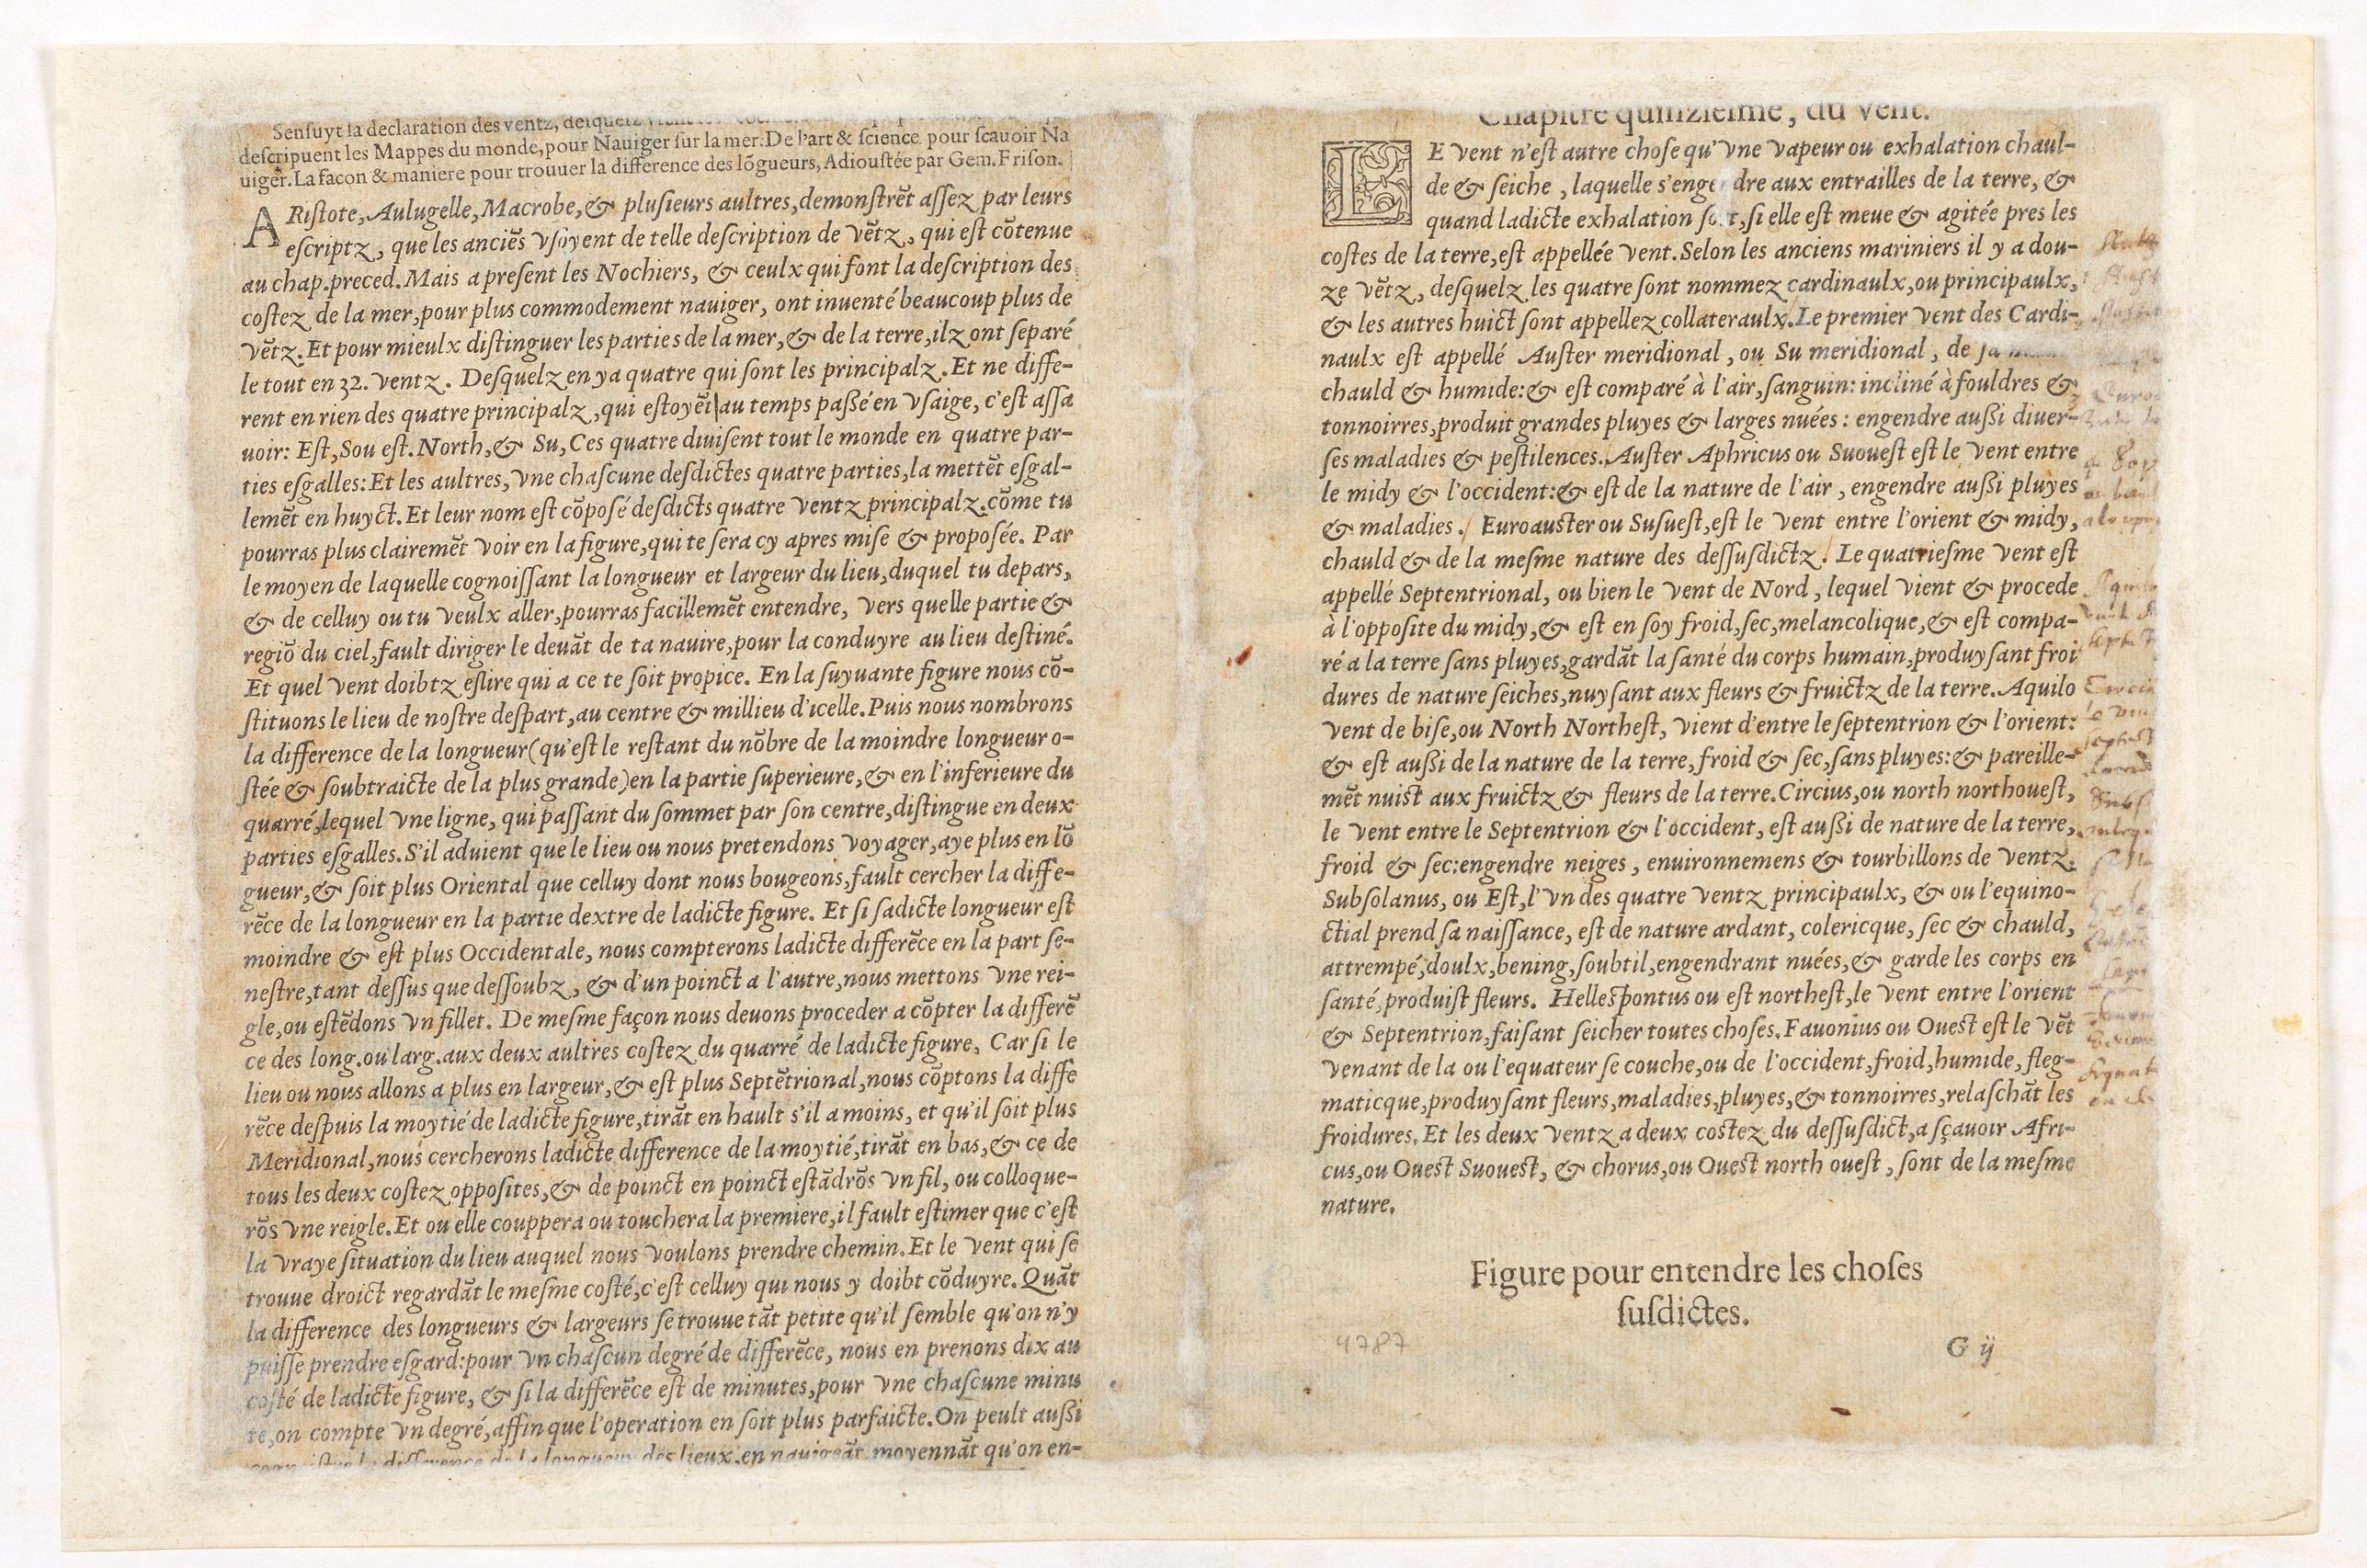 Senſuyt la declaration des ventz, deſquelz
deſcripuent les Mappes du monde, pour Nauiger ſur la mer: De l'art & ſcience pour ſcauoir Na
uiger. La facon & maniere pour trouuer la difference des lõgueurs, Adiouſtée par Gem. Friſon.
ARiſtote, Aulugelle, Macrobe, & pluſieurs aultres, demonſtrẽt aſſez par leurs
eſcriptz, que les anciẽs vſoyent de telle deſcription de vẽtz, qui eſt cõtenue
au chap. preced. Mais a preſent les Nochiers, & ceulx qui font la deſcription des
coſtez de la mer, pour plus commodement nauiger, ont inuenté beaucoup plus de
vẽtz. Et pour mieulx diſtinguer les parties de la mer, & de la terre, ilz ont ſeparé
le tout en 32. ventz. Deſquelz en ya quatre qui ſont les principalz. Et ne diffe-
rent en rien des quatre principalz, qui eſtoyẽt au temps paßé en vſaige, c'eſt aſſa
uoir: Eſt, Sou eſt. North, & Su, Ces quatre diuiſent tout le monde en quatre par-
ties eſgalles: Et les aultres, vne chaſcune deſdictes quatre parties, la mettẽt eſgal-
lemẽt en huyct. Et leur nom eſt cõpoſé deſdicts quatre ventz principalz. cõme tu
pourras plus clairemẽt voir en la figure, qui te ſera cy apres miſe & propoſée. Par
le moyen de laquelle cognoiſſant la longueur et largeur du lieu, duquel tu depars,
& de celluy ou tu veulx aller, pourras facillemẽt entendre, vers quelle partie &
regiõ du ciel, fault diriger le deuãt de ta nauire, pour la conduyre au lieu deſtiné.
Et quel vent doibtz eſlire qui a ce te ſoit propice. En la ſuyuante figure nous cõ-
ſtituons le lieu de noſtre deſpart, au centre & millieu d'icelle. Puis nous nombrons
la difference de la longueur (qu'eſt le reſtant du nõbre de la moindre longueur o-
ſtée & ſoubtraicte de la plus grande) en la partie ſuperieure, & en l'inferieure du
quarré, lequel vne ligne, qui paſſant du ſommet par ſon centre, diſtingue en deux
parties eſgalles. S'il aduient que le lieu ou nous pretendons voyager, aye plus en lõ
gueur, & ſoit plus Oriental que celluy dont nous bougeons, fault cercher la diffe-
rẽce de la longueur en la partie dextre de ladicte figure. Et ſi ſadicte longueur eſt
moindre & eſt plus Occidentale, nous compterons ladicte differẽce en la part ſe-
neſtre, tant deſſus que deſſoubz, & d'un poinct a l'autre, nous mettons vne rei-
gle, ou eſtẽdons vn fillet. De meſme façon nous deuons proceder a cõpter la differẽ
ce des long. ou larg. aux deux aultres coſtez du quarré de ladicte figure, Car ſi le
lieu ou nous allons a plus en largeur, & eſt plus Septẽtrional, nous cõptons la diffe
rẽce deſpuis la moytié de ladicte figure, tirãt en hault s'il a moins, et qu'il ſoit plus
Meridional, nous cercherons ladicte difference de la moytié, tirãt en bas, & ce de
tous les deux coſtez oppoſites, & de poinct en poinct eſtãdrõs vn fil, ou colloque-
rõs vne reigle. Et ou elle couppera ou touchera la premiere, il fault eſtimer que c'eſt
la vraye ſituation du lieu auquel nous voulons prendre chemin. Et le vent qui ſe
trouue droict regardãt le meſme coſté, c'eſt celluy qui nous y doibt cõduyre. Quãt
la difference des longueurs & largeurs ſe trouue tãt petite qu'il ſemble qu'on n'y
puiſſe prendre eſgard: pour vn chaſcun degré de differẽce, nous en prenons dix au
coſté de ladicte figure, & ſi la differẽce eſt de minutes, pour vne chaſcune minu
te, on compte vn degré, affin que l'operation en ſoit plus parfaicte. On peult außi
difference de la longueur des lieux, en nauigeãt, moyennãt qu'on en-
Chapitre quinzieſme, du vent.
LE vent n'eſt autre choſe qu'vne vapeur ou exhalation chaul-
de & ſeiche, laquelle s'engendre aux entrailles de la terre, &
quand ladicte exhalation ſort, ſi elle eſt meue & agitée pres les
coſtes de la terre, eſt appellée vent. Selon les anciens mariniers il y a dou-
ze vẽtz, deſquelz les quatre ſont nommez cardinaulx, ou principaulx,
& les autres huict ſont appellez collateraulx. Le premier vent des Cardi-
naulx eſt appellé Auſter meridional, ou Su meridional, de ſa
chauld & humide: & eſt comparé à l'air, ſanguin: incliné à fouldres &
tonnoirres, produit grandes pluyes & larges nuées: engendre außi diuer-
ſes maladies & peſtilences. Auſter Aphricus ou Suoueſt eſt le vent entre
le midy & l'occident: & eſt de la nature de l'air, engendre außi pluyes
& maladies. Euroauſter ou Suſueſt, eſt le vent entre l'orient & midy,
chauld & de la meſme nature des deſſuſdictz. Le quatrieſme vent eſt
appellé Septentrional, ou bien le vent de Nord, lequel vient & procede
à l'oppoſite du midy, & eſt en ſoy froid, ſec, melancolique, & eſt compa-
ré a la terre ſans pluyes, gardãt la ſanté du corps humain, produyſant froi
dures de nature ſeiches, nuyſant aux fleurs & fruictz de la terre. Aquilo
vent de biſe, ou North Northeſt, vient d'entre le ſeptentrion & l'orient:
& eſt außi de la nature de la terre, froid & ſec, ſans pluyes: & pareille-
mẽt nuiſt aux fruictz & fleurs de la terre. Circius, ou north northoueſt,
le vent entre le Septentrion & l'occident, eſt außi de nature de la terre,
froid & ſec: engendre neiges, enuironnemens & tourbillons de ventz.
Subſolanus, ou Eſt, l'vn des quatre ventz principaulx, & ou l'equino-
ctial prend ſa naiſſance, eſt de nature ardant, colericque, ſec & chauld,
attrempé, doulx, bening, ſoubtil, engendrant nuées, & garde les corps en
ſanté, produiſt fleurs. Helleſpontus ou eſt northeſt, le vent entre l'orient
& Septentrion, faiſant ſeicher toutes choſes. Fauonius ou Oueſt eſt le vẽt
venant de la ou l'equateur ſe couche, ou de l'occident, froid, humide, fleg-
maticque, produyſant fleurs, maladies, pluyes, & tonnoirres, relaſchãt les
froidures. Et les deux ventz a deux coſtez du deſſuſdict, a ſçauoir Afri-
cus, ou Oueſt Suoueſt, & chorus, ou Oueſt north oueſt, ſont de la meſme
nature.
Figure pour entendre les choſes
ſuſdictes.
4787
G ij